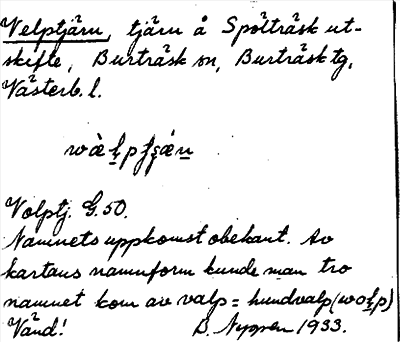 Velptjärn, tjärn å Spölträsk ut-
skifte, Burträsk sn, Burträsk tg,
Västerb. l.
Volptj. G.50.
Namnets uppkomst obekant. Av
kartans namnform kunde man tro
namnet kom av valp = hundvalp (wolp)
Vänd! B. Nygren 1933.